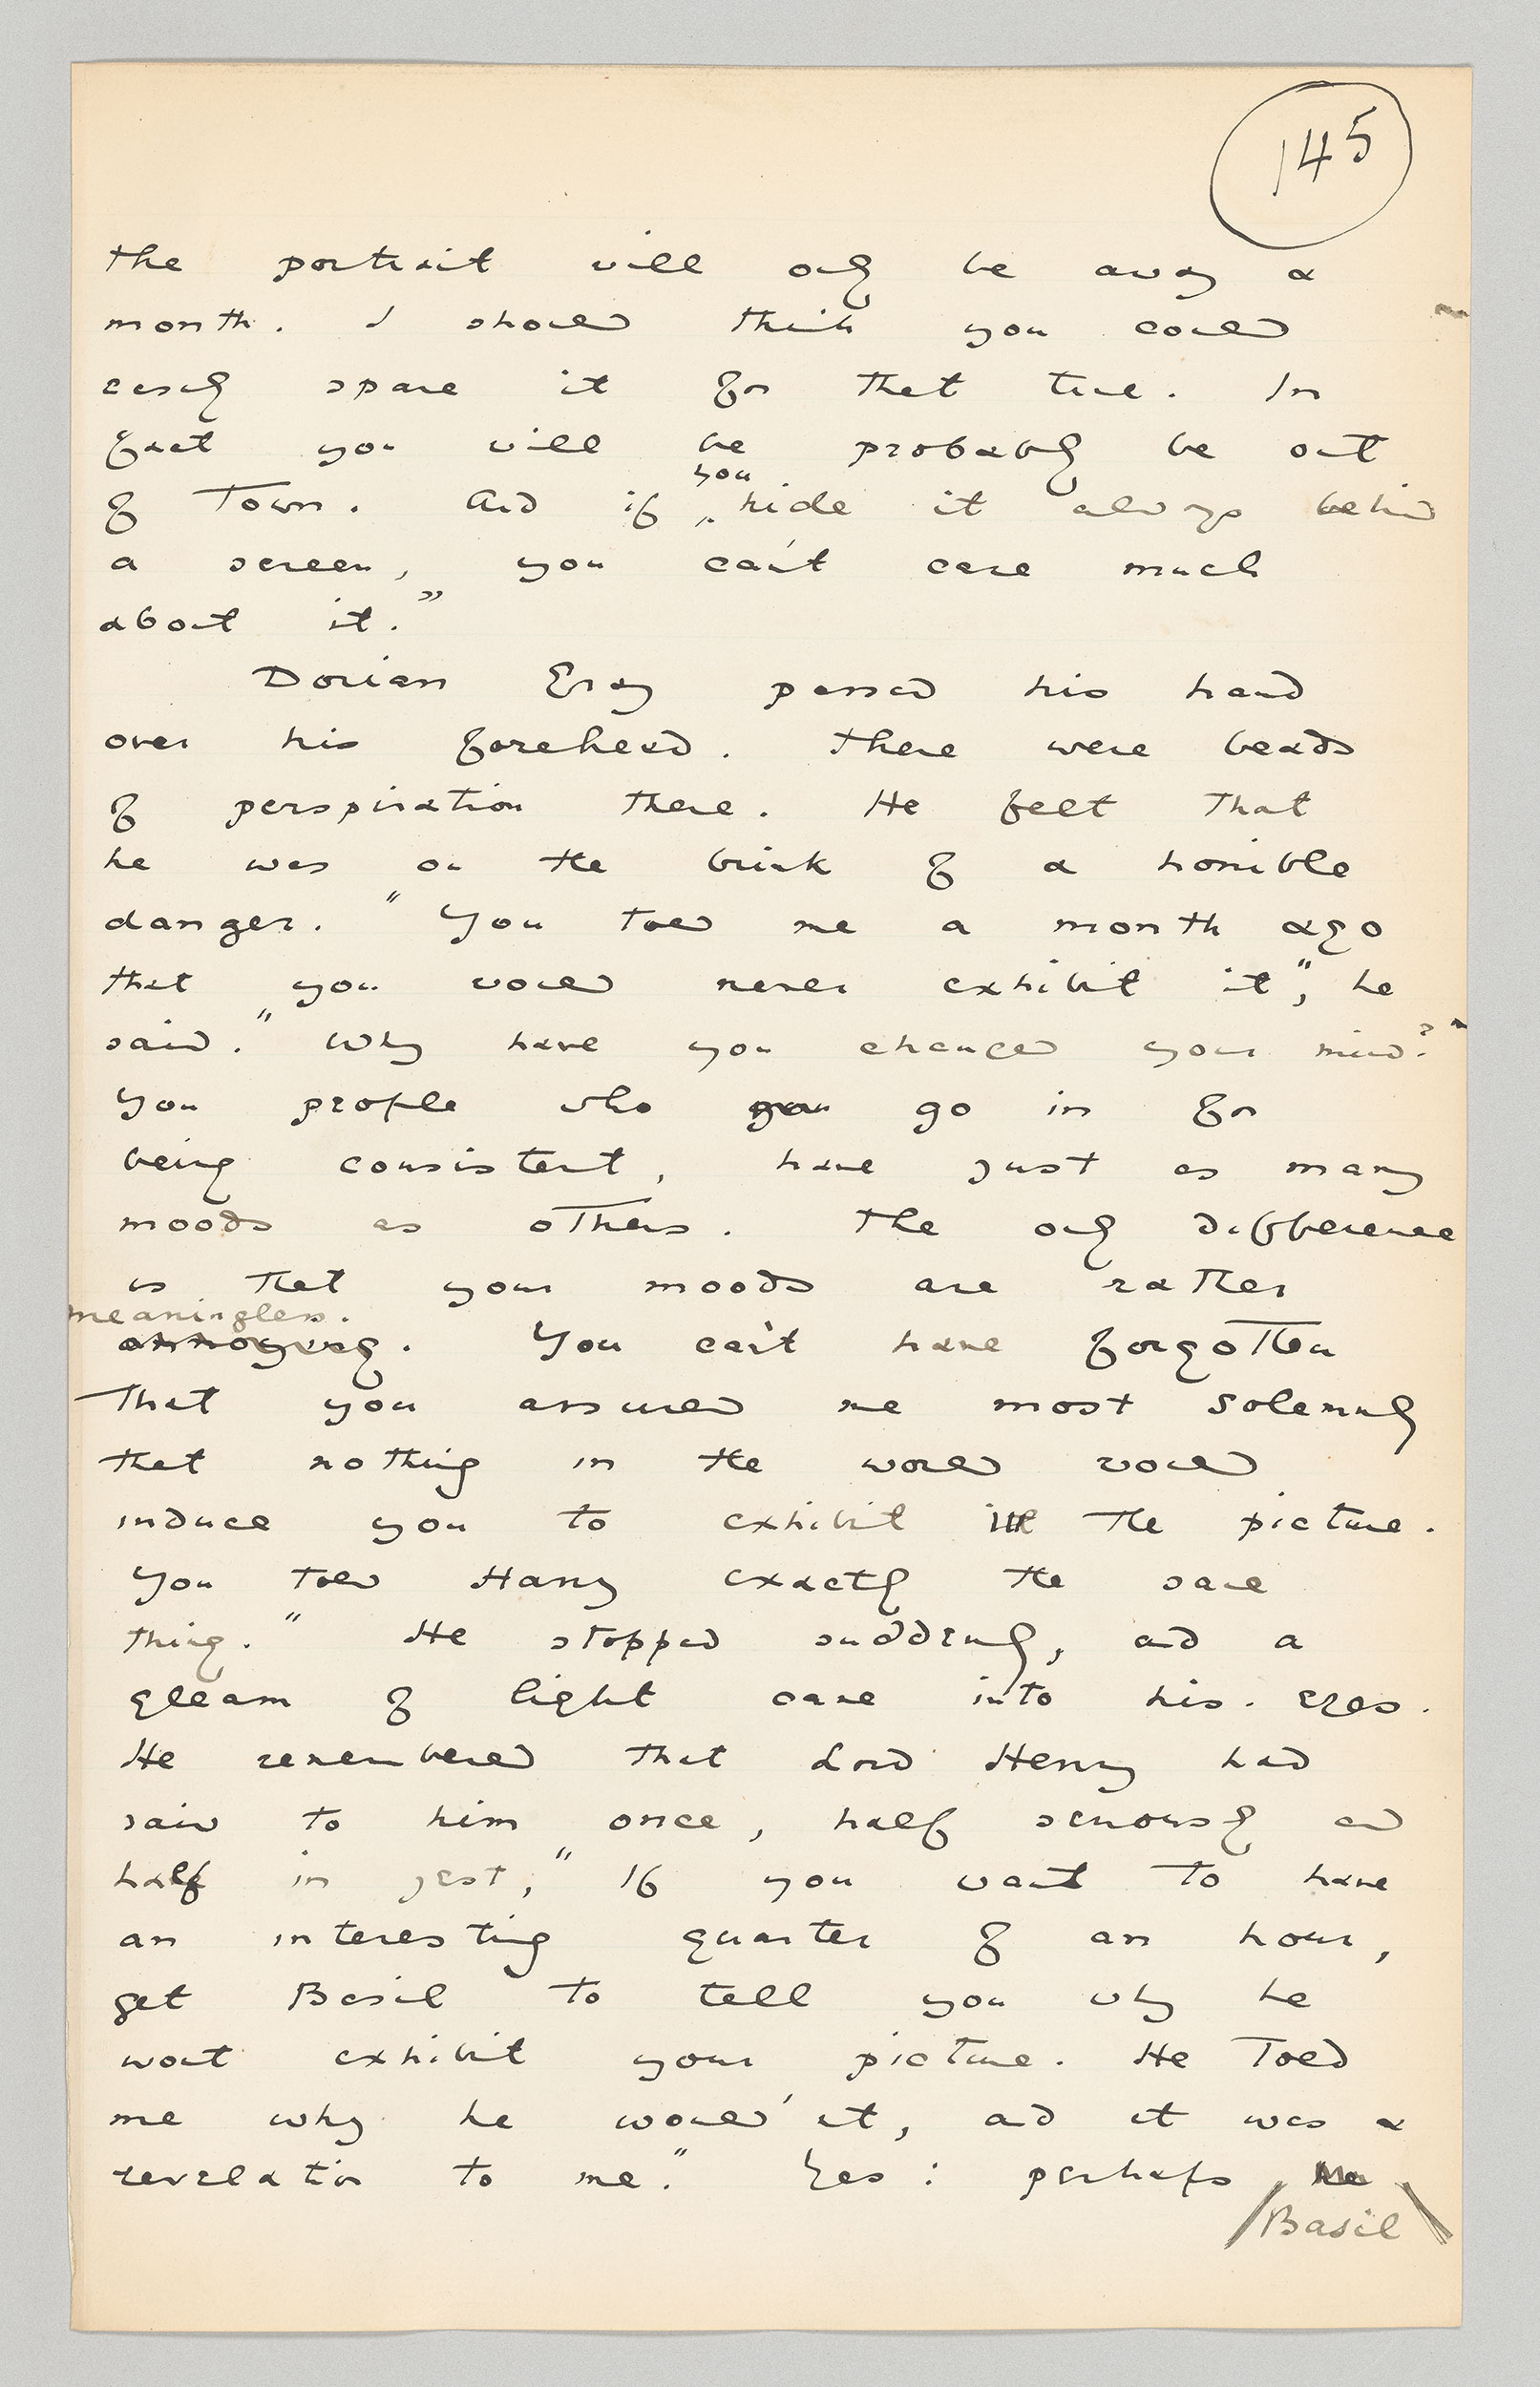 145
the portrait will only be away a
month. I should think you could
easily spare it for that time. In
fact you will be probably be out
of Town. And if you hide it always behind
a screen, you can't care much
about it."
Dorian Gray passed his hand
over his forehead. There were beads
of perspiration there. He felt that
he was on the brink of a horrible
danger. "You told me a month ago
that you would never exhibit it", he
said. "Why have you changed your mind?"
You people who go in for
being consistent, have just as many
moods as others. The only difference
is that your moods are rather
meaningless.
annoying. You can't have forgotten
that you assured me most solemnly
that nothing in the world would
induce you to exhibit the picture.
You told Harry exactly the same
thing." He stopped suddenly, and a
gleam of light came into his. eyes.
He remembered that Lord Henry had
said to him once, half seriously and
half in jest, "If you want to have
an interesting quarter of an hour,
get Basil to tell you why he
wont exhibit your picture. He told
me why he would'nt, and it was a
revelation to me." Yes: perhaps
Basil